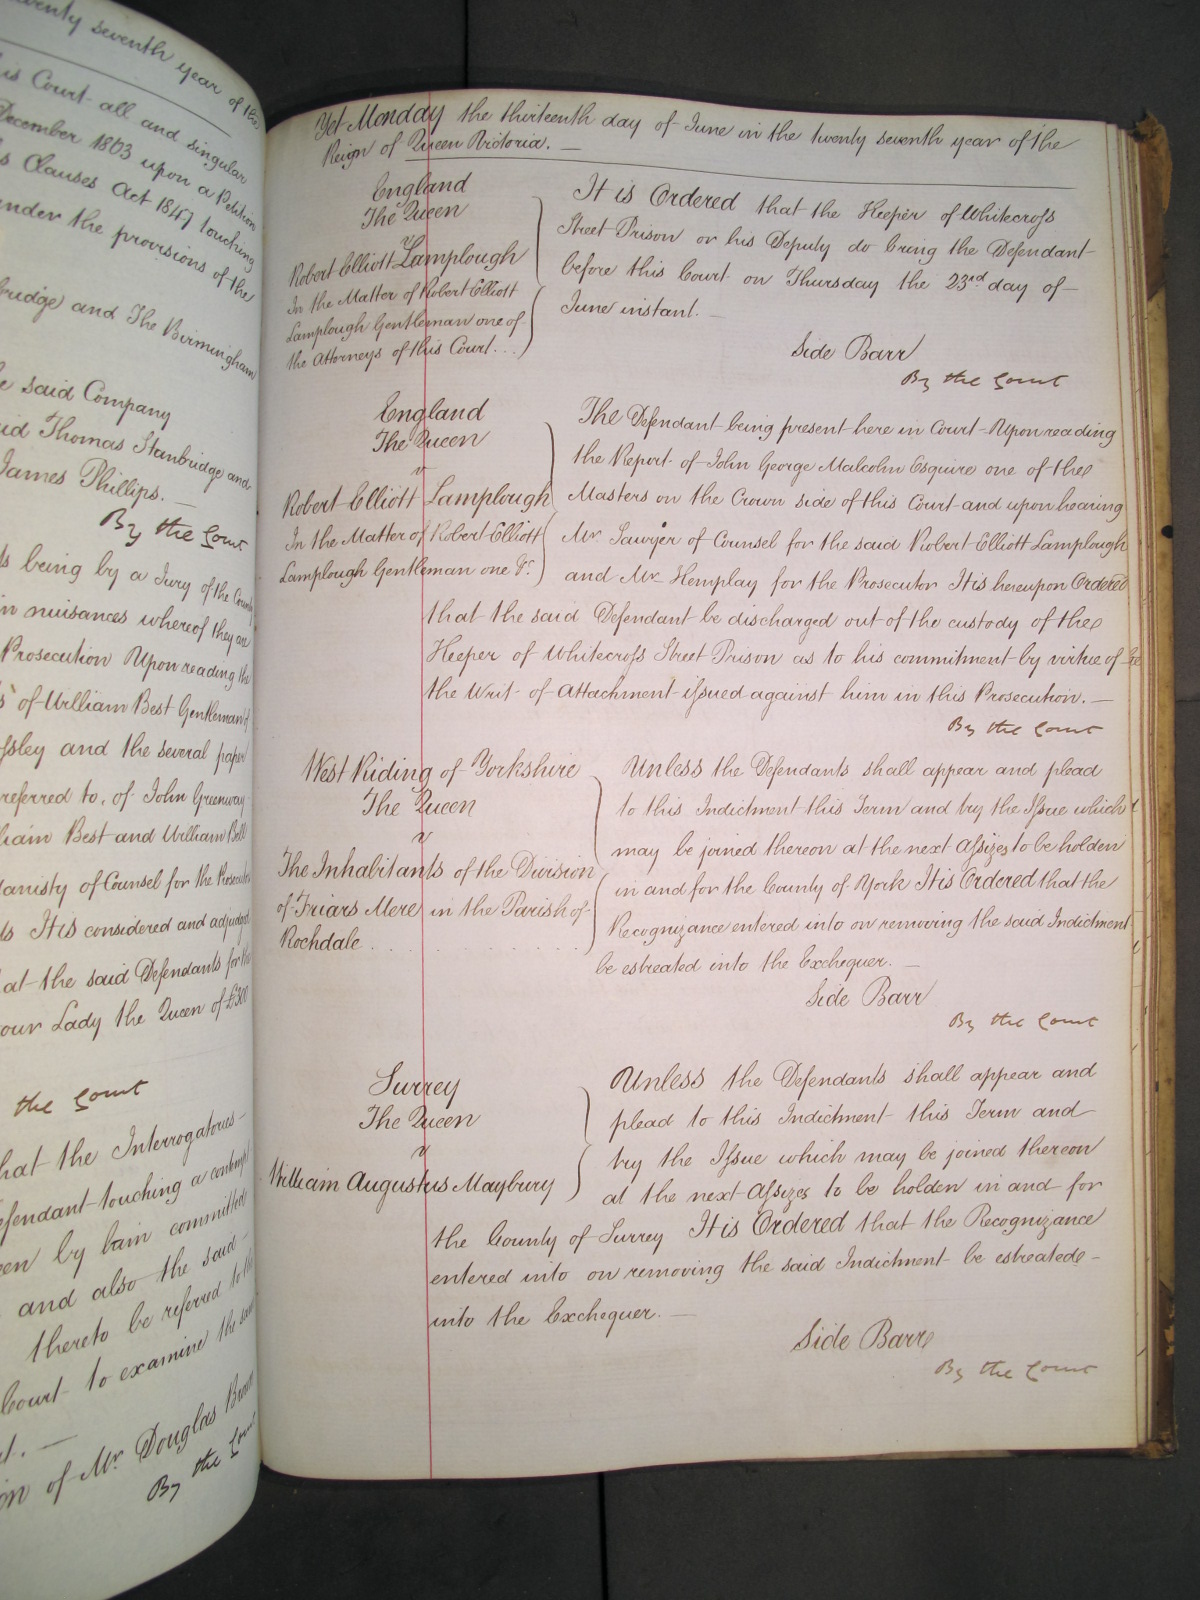 twenty seventh year of the
is Court all and singular
December 1863 upon a Petition
s Clauses Act 1847 touching
under the provisions of the
bridge and The Birmingham
e said Company
id Thomas Stanbridge and
James Phillips. —
By the Court
ts being by a Jury of the County
in nuisances whereof they are
Prosecution Upon reading the
s of William Best Gentleman
ssley and the several paper
referred to, of John Greenway
liam Best and William Bell
Manisty of Counsel for the Prosecutor
ts It is considered and adjudged
at the said Defendants for the
our Lady the Queen of £300
the Court
hat the Interrogatories
efendant touching a contempt
een by him committed
and also the said
thereto be referred to the
Court to examine the said
t. —
on of Mr. Douglas Brown
By the Court
Yet Monday the thirteenth day of June in the twenty seventh year of the
Reign of Queen Victoria. —
England
The Queen
v
Robert Elliott Lamplough
In the Matter of Robert Elliott
Lamplough Gentleman one of
the Attorneys of this Court...
It is Ordered that the Keeper of Whitecross
Street Prison or his Deputy do bring the Defendant
before this Court on Thursday the 23rd day of
June instant. —
Side Barr
By the Court
England
The Queen
v
Robert Elliott Lamplough
In the Matter of Robert Elliott
Lamplough Gentleman one &c.
The Defendant being present here in Court Upon reading
the Report of John George Malcolm Esquire one of the
Masters on the Crown side of this Court and upon hearing
Mr Sawyer of Counsel for the said Robert Elliott Lamplough
and Mr Hemplay for the Prosecutor It is hereupon Ordered
that the said Defendant be discharged out of the custody of the
Keeper of Whitecross Street Prison as to his commitment by virtue of
the Writ of Attachment issued against him in this Prosecution. —
By the Court
West Riding of Yorkshire
The Queen
v
The Inhabitants of the Division
of Friars Mere in the Parish of
Rochdale . . . . . . . . .
Unless the Defendants shall appear and plead
to this Indictment this Term and try the Issue which
may be joined thereon at the next Assizes to be holden
in and for the County of York It is Ordered that the
Recognizance entered into on removing the said Indictment
be estreated into the Exchequer. —
Side Barr
By the Court
Surrey
The Queen
v
William Augustus Maybury
Unless the Defendants shall appear and
plead to this Indictment this Term and
try the Issue which may be joined thereon
at the next Assizes to be holden in and for
the County of Surrey It is Ordered that the Recognizance
entered into on removing the said Indictment be estreated
into the Exchequer. —
Side Barr
By the Court